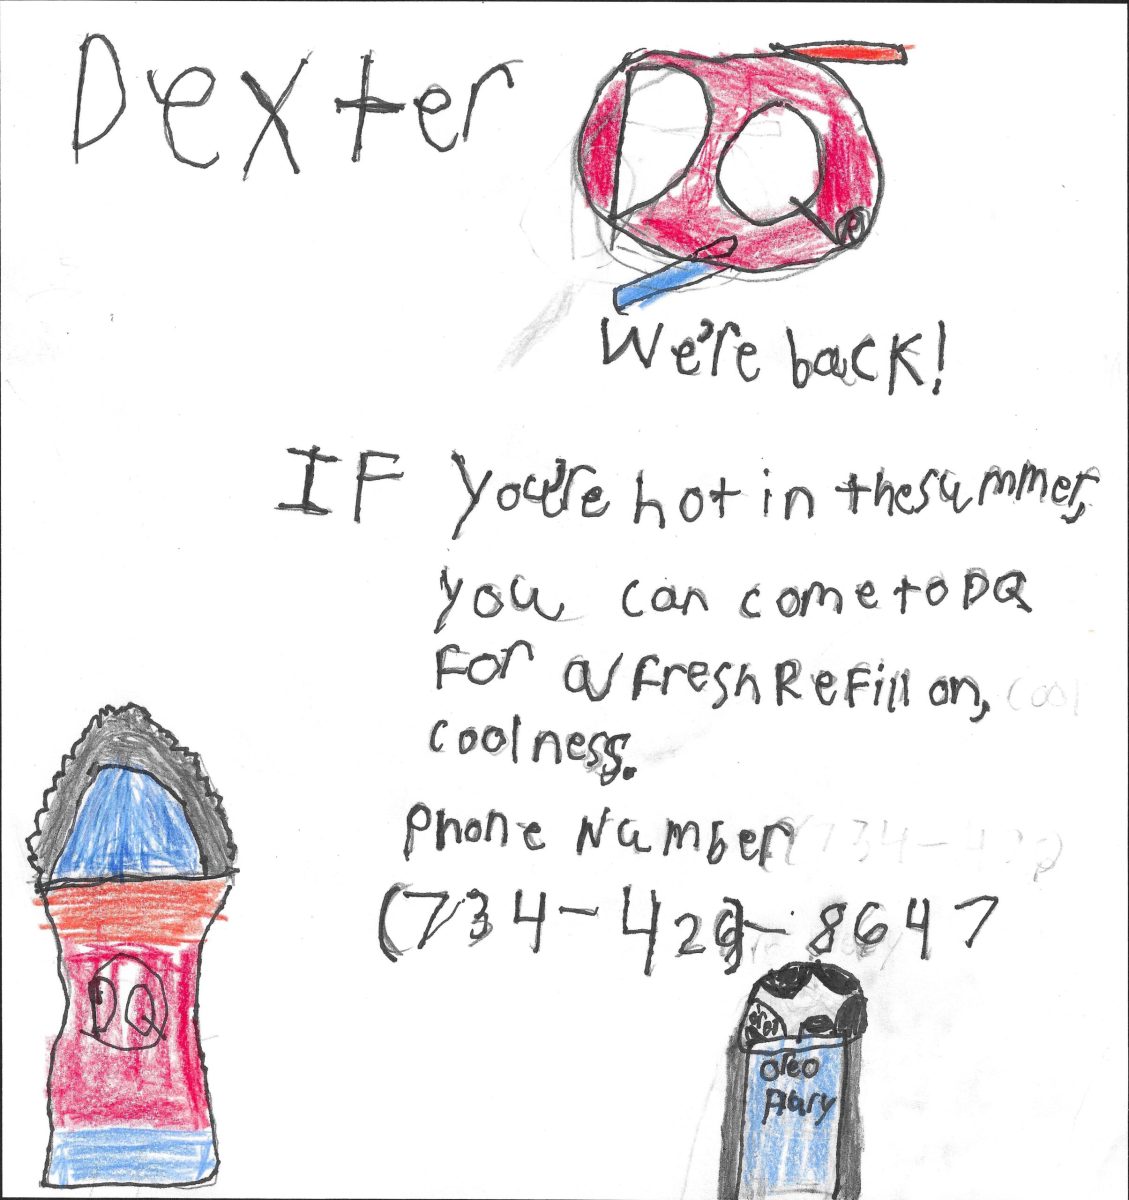 Dexter
DQ
R
We're back!
IF you're hot in the summer,
you can come to DQ
For a fresh Refill on,
coolness.
Phone Number
(734-429-8647
DQ
oreo